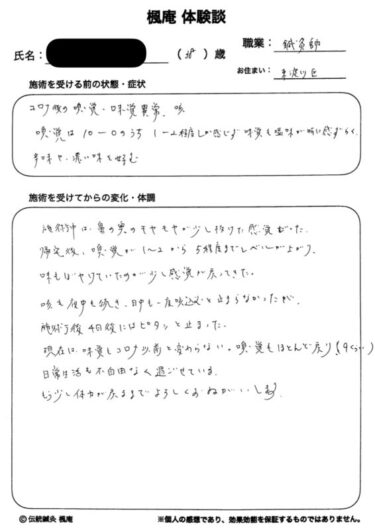 楓庵 体験談
氏名： （38）歳 職業：鍼灸師
お住まい：東淀川区
施術を受ける前の状態・症状
コロナ後の嗅覚・味覚異常、咳
嗅覚は10－0のうち 1～2程度しか感じず 味覚も塩味が特に感ずらく
辛味や、濃い味を好む
施術を受けてからの変化・体調
施術中は、鼻の奥のモヤモヤが少し拡りた感覚がった。
帰宅後、嗅覚が1～2から 5程度までレベルが上がり、
味もぼやけていたのが少し感覚が戻ってきた。
咳も夜中も続き、日中も一度咳込むと止まらなかったが、
施術後 4日後にはピタッと止まった。
現在は、味覚もコロナ以前と変わらない。嗅覚もほとんど戻り！（9くらい）
日常生活も不自由なく過ごせている。
もう少し体力が戻るまでよろしくおねがいします
© 伝統鍼灸 楓庵 ※個人の感想であり、効果効能を保証するものではありません。